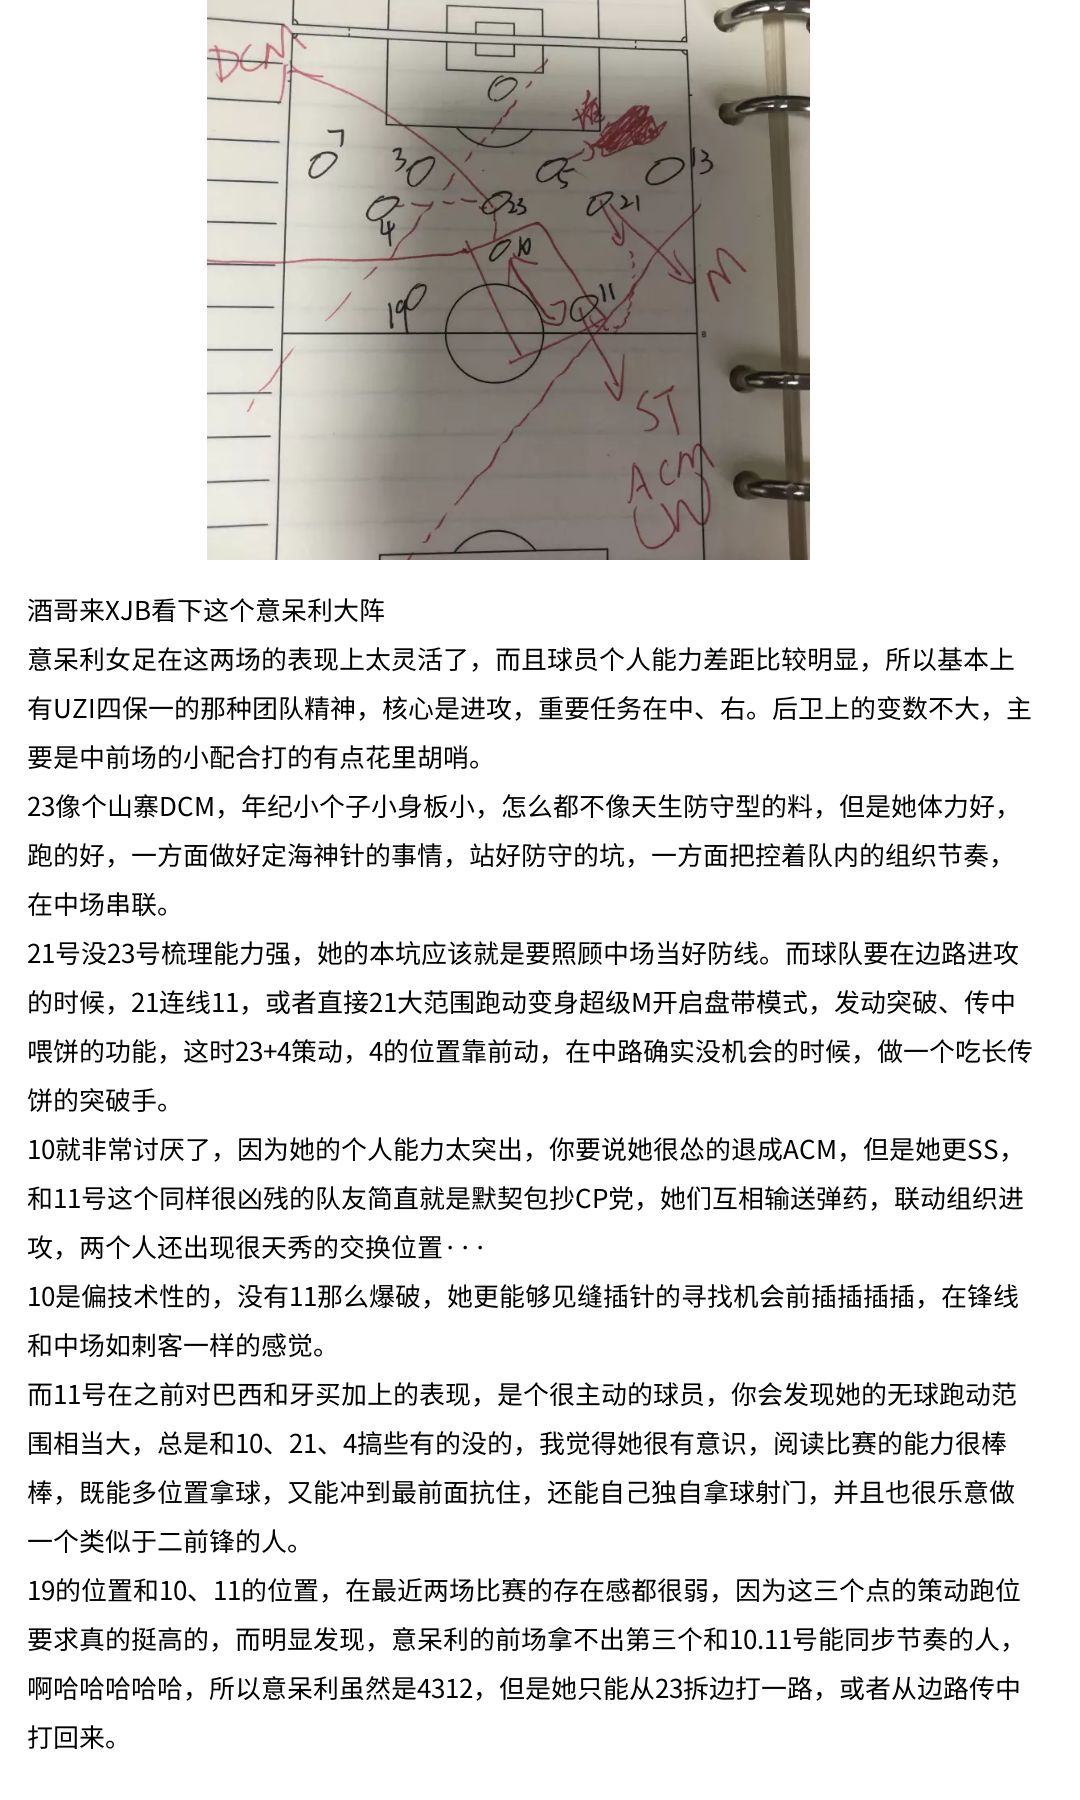 DCM
7
3
5
13
4
23
21
10
M
19
11
ST
ACM
CW
酒哥来XJB看下这个意呆利大阵
意呆利女足在这两场的表现上太灵活了，而且球员个人能力差距比较明显，所以基本上
有UZI四保一的那种团队精神，核心是进攻，重要任务在中、右。后卫上的变数不大，主
要是中前场的小配合打的有点花里胡哨。
23像个山寨DCM，年纪小个子小身板小，怎么都不像天生防守型的料，但是她体力好，
跑的好，一方面做好定海神针的事情，站好防守的坑，一方面把控着队内的组织节奏，
在中场串联。
21号没23号梳理能力强，她的本坑应该就是要照顾中场当好防线。而球队要在边路进攻
的时候，21连线11，或者直接21大范围跑动变身超级M开启盘带模式，发动突破、传中
喂饼的功能，这时23+4策动，4的位置靠前动，在中路确实没机会的时候，做一个吃长传
饼的突破手。
10就非常讨厌了，因为她的个人能力太突出，你要说她很怂的退成ACM，但是她更SS，
和11号这个同样很凶残的队友简直就是默契包抄CP党，她们互相输送弹药，联动组织进
攻，两个人还出现很天秀的交换位置···
10是偏技术性的，没有11那么爆破，她更能够见缝插针的寻找机会前插插插插，在锋线
和中场如刺客一样的感觉。
而11号在之前对巴西和牙买加上的表现，是个很主动的球员，你会发现她的无球跑动范
围相当大，总是和10、21、4搞些有的没的，我觉得她很有意识，阅读比赛的能力很棒
棒，既能多位置拿球，又能冲到最前面抗住，还能自己独自拿球射门，并且也很乐意做
一个类似于二前锋的人。
19的位置和10、11的位置，在最近两场比赛的存在感都很弱，因为这三个点的策动跑位
要求真的挺高的，而明显发现，意呆利的前场拿不出第三个和10.11号能同步节奏的人，
啊哈哈哈哈哈，所以意呆利虽然是4312，但是她只能从23拆边打一路，或者从边路传中
打回来。